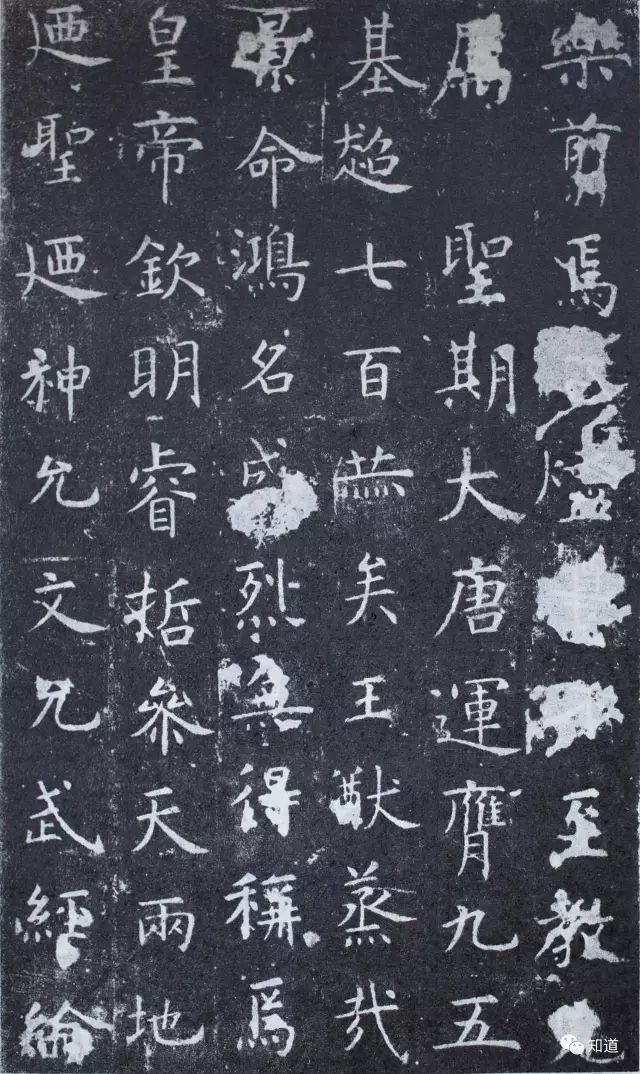 樂翦焉燼至教
屬聖期大唐運膺九五
基超七百赫矣王猷蒸哉
景命鴻名成烈無得稱焉
皇帝欽明睿哲參天兩地
迺聖迺神允文允武經綸
知道